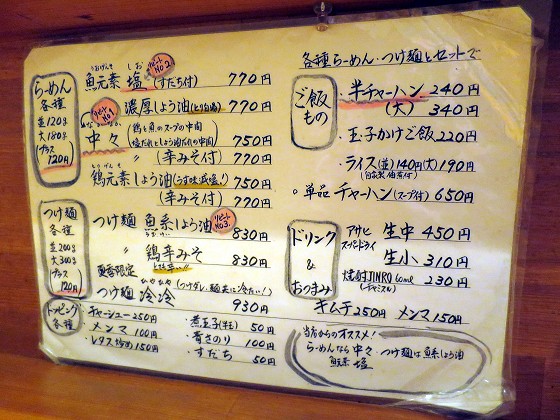 らーめん各種
並120g
大180g
プラス120円
うおげんそ しお
魚元素 塩(すだち付) 770円
リピートNo.2
濃厚しょう油(とり白湯) 770円
リピートNo.1
中々(鶏と魚のスープの中間 塩だれとしょう油だれの中間) 750円
〃(辛みそ付) 770円
鶏元素しょう油(うす味、減塩!) 750円
(辛みそ付) 770円
つけ麺各種
並200g
大300g
プラス120円
つけ麺 魚系しょう油 830円
リピートNo.3.
〃 鶏辛みそ 830円
夏季限定
つけ麺 冷冷(つけダレ、麺共に冷たい!) 930円
トッピング各種
・チャーシュー250円
・メンマ 100円
・レタス炒め 150円
・煮玉子(半玉) 50円
・青さのり 100円
・すだち 50円
各種らーめん・つけ麺とセットで
ご飯もの
・半チャーハン 240円
(大) 340円
・玉子かけご飯 220円
・ライス(並)140円(大)190円
○単品 チャーハン(スープ付) 650円
ドリンク&おつまみ
アサヒスーパードライ 生中 450円
生小 310円
焼酎JINRO 60ml(チャミスル) 230円
キムチ 250円 メンマ150円
当店からのオススメ!
らーめんなら 中々・つけ麺は魚系しょう油
魚元素 塩